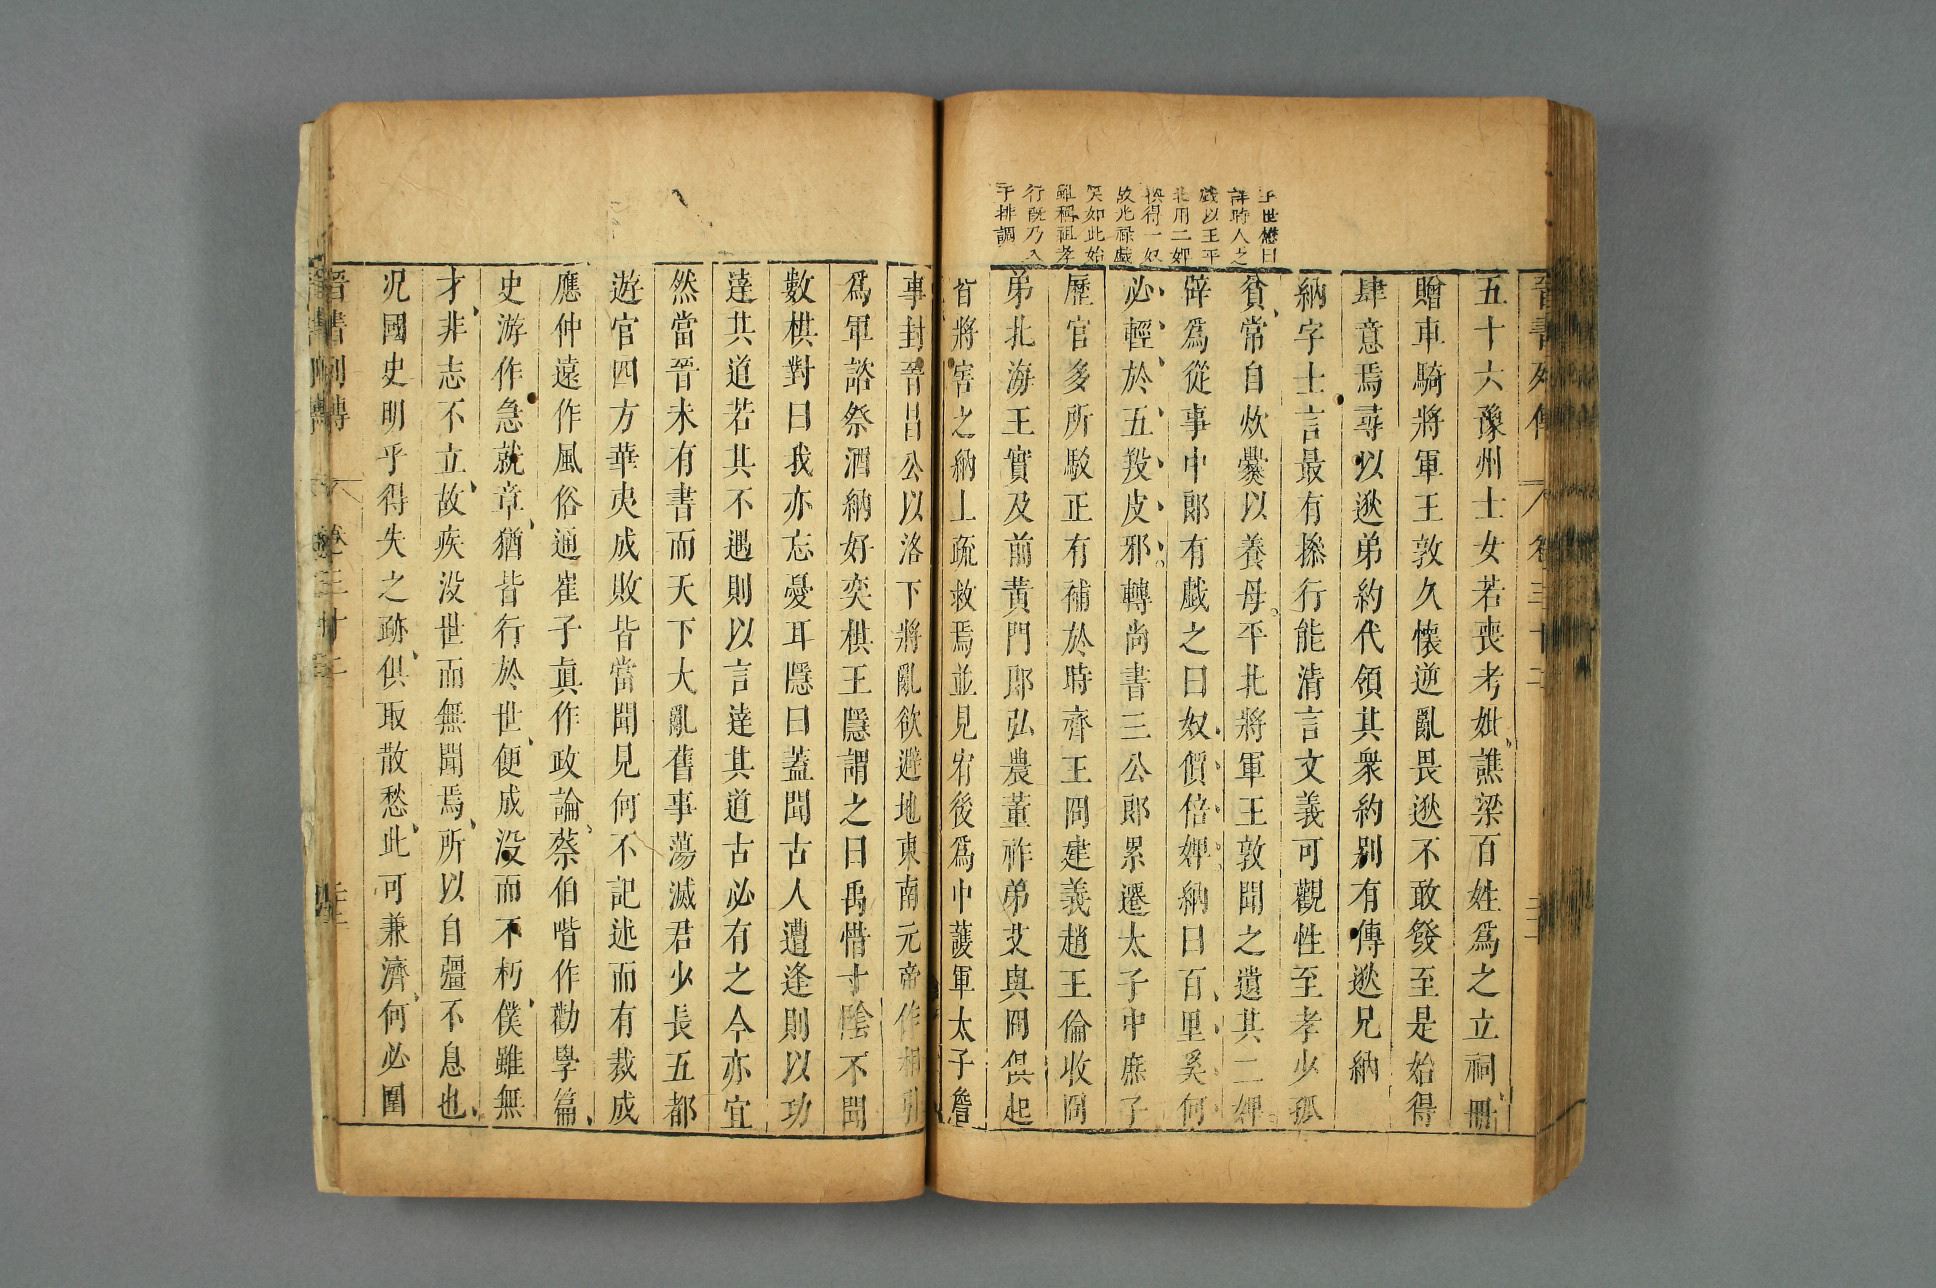 晉書列傳 卷三十二
王世懋曰
詳時人之
戲以王平
北用二婢
換得一奴
故光祿戲
笑如此始
雖稱祖孝
行旣乃入
于排調
五十六豫州士女若喪考妣譙梁百姓爲之立祠冊
贈車騎將軍王敦久懷逆亂畏逖不敢發至是始得
肆意焉尋以逖弟約代領其衆約别有傳逖兄納
納字士言最有操行能淸言文義可觀性至孝少孤
貧常自炊爨以養母平北將軍王敦聞之遺其二婢
辟爲從事中郞有戲之曰奴價倍婢納曰百里奚何
必輕於五羖皮邪轉尚書三公郞累遷太子中庶子
歷官多所駁正有補於時齊王冏建義趙王倫收冏
弟北海王寔及前黃門郞弘農董祚弟艾與冏俱起
皆將害之納上疏救焉並見宥後爲中護軍太子詹
事封晉昌公以洛下將亂欲避地東南元帝作相引
爲軍諮祭酒納好奕棋王隱謂之曰禹惜寸陰不聞
數棋對曰我亦忘憂耳隱曰蓋聞古人遭逢則以功
達其道若其不遇則以言達其道古必有之今亦宜
然當晉未有書而天下大亂舊事蕩滅君少長五都
遊官四方華夷成敗皆當聞見何不記述而有裁成
應仲遠作風俗通崔子眞作政論蔡伯喈作勸學篇
史游作急就章猶皆行於世便成沒而不朽僕雖無
才非志不立故疾没世而無聞焉所以自彊不息也
况國史明乎得失之跡俱取散愁此可兼濟何必圍
晉書列傳 卷三十二